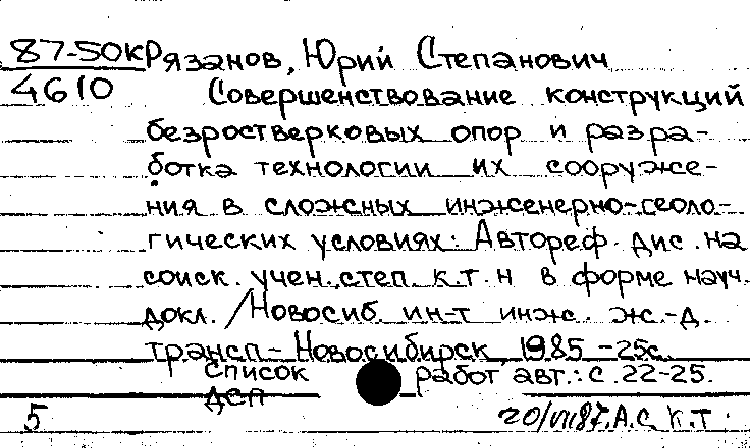 87-50К Рязанов, Юрий Степанович
4610 Совершенствование конструкций
безростверковых опор и разра-
ботка технологии их сооруже-
ния в сложных инженерно-геоло-
гических условиях: Автореф. дис. на
соиск. учен. степ. к.т.н в форме науч.
докл. /Новосиб. ин-т инж. ж.-д.
трансп.- Новосибирск, 1985 -25с.
Список работ авт.: с. 22-25.
ДСП
5 20/VII87. А.С. К.Т.